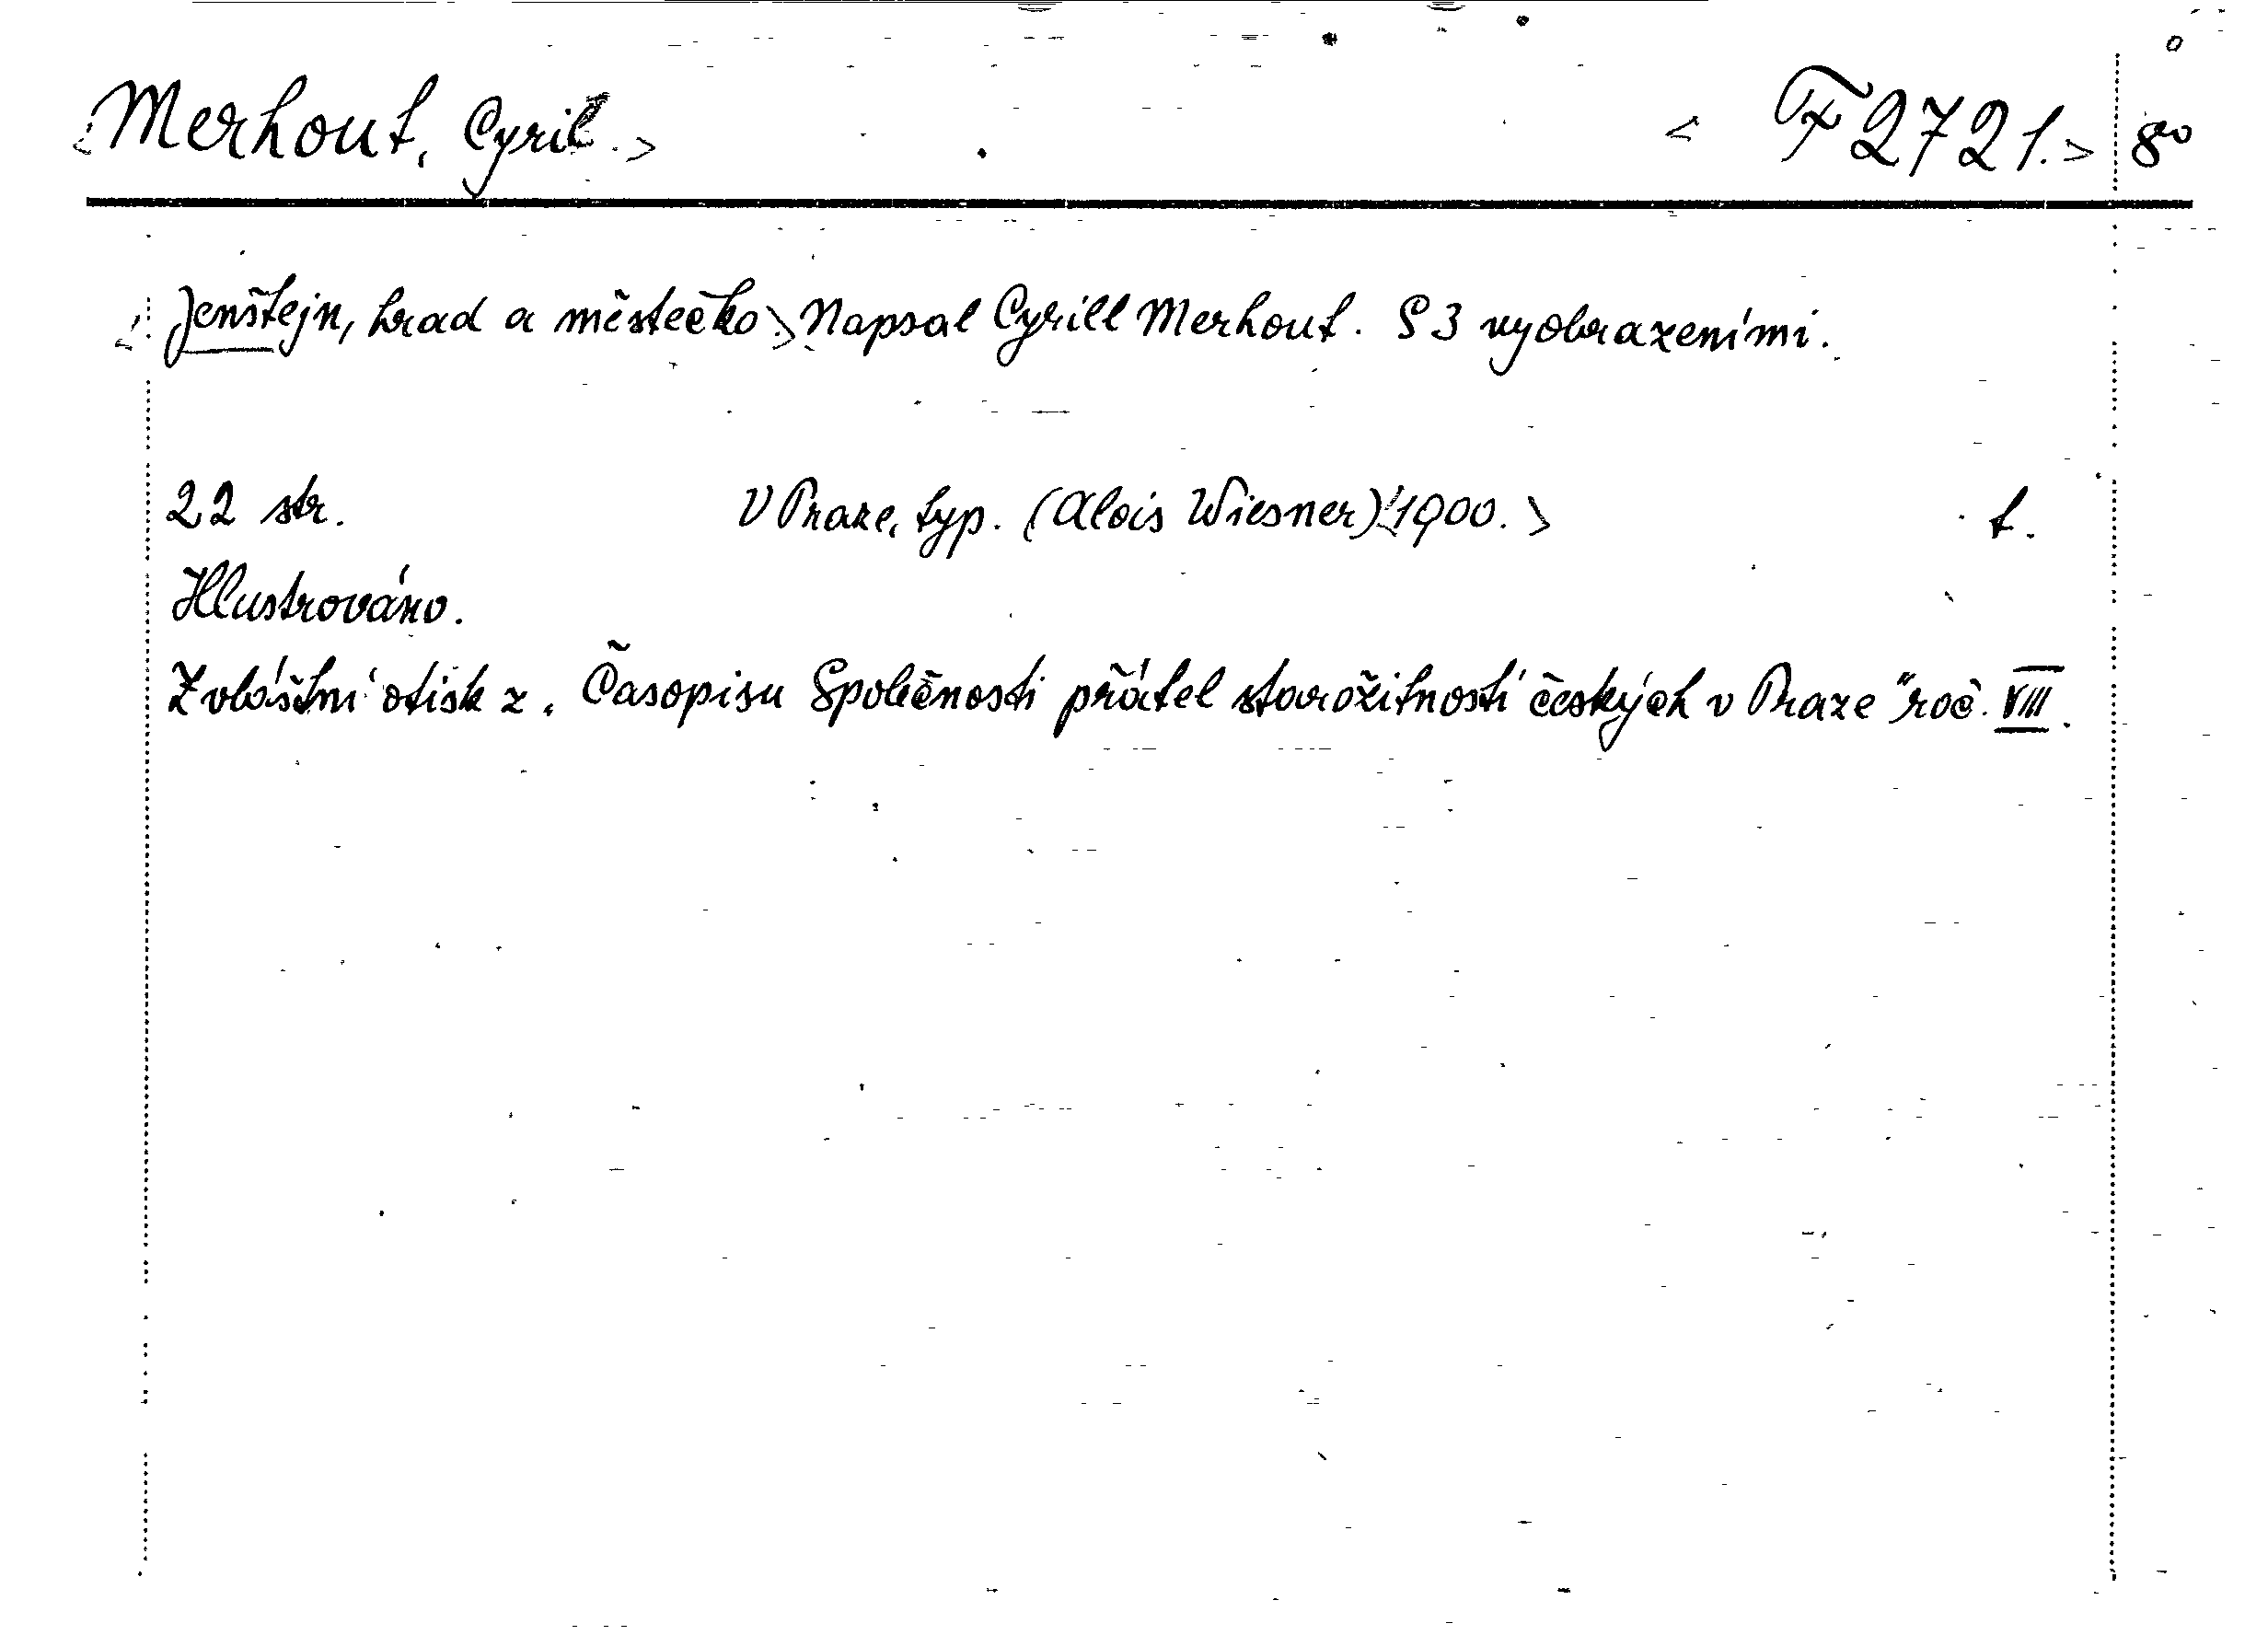 <Merhout, Cyril.> <F 2721.> 8°
<Jenštejn, hrad a městečko.> Napsal Cyrill Merhout. S 3 vyobrazeními.
22 str. V Praze, typ. (Alois Wiesner) <1900.> t.
Illustrováno.
Zvláštní otisk z „Časopisu Společnosti přátel starožitností českých v Praze" roč. VIII.